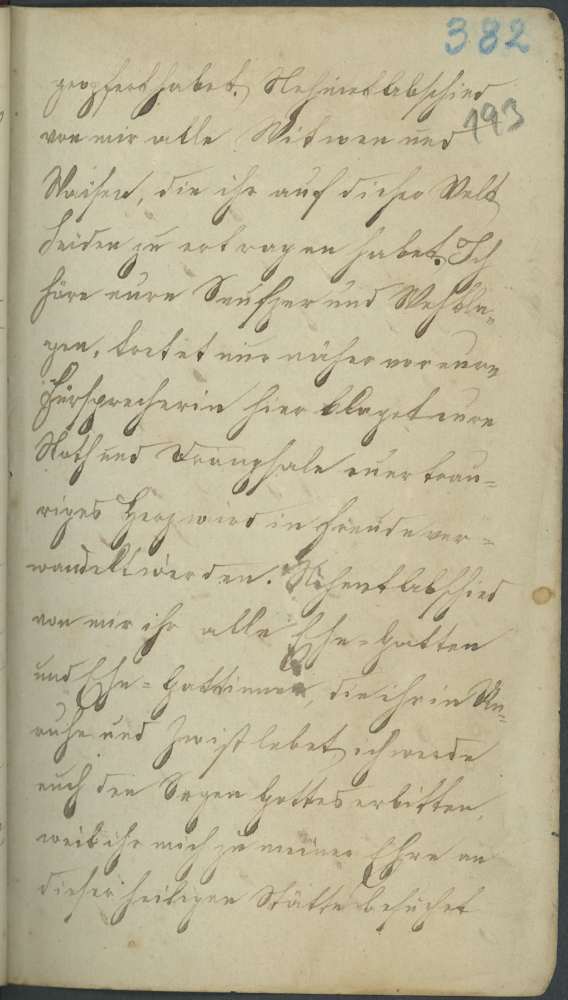 382
193
geopfert habet. Nehmet Abschied
von mir alle Witwen und
Waisen, die ihr auf dieser Welt
Leiden zu ertragen habet. Ich
höre eure Seufzer und Wehkla-
gen, tretet nur näher vor eure
Fürsprecherin hier klaget eure
Noth und Drangsale euer trau-
riges Herz wird in Freude ver-
wandelt werden. Nehmet Abschied
von mir ihr alle Ehe-Gatten
und Ehe-Gattinnen, die ihr in Un-
ruhe und Zwist lebet, ich werde
euch den Segen Gottes erbitten,
weil ihr mich zu meiner Ehre an
dieser heiligen Stätte besuchet